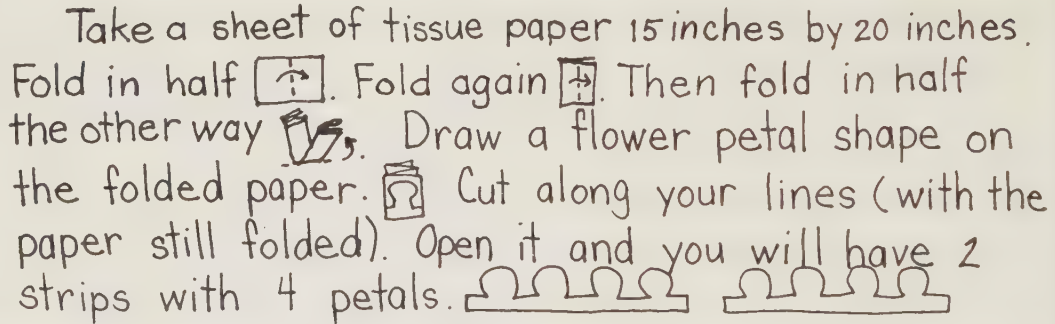 Take a sheet of tissue paper 15 inches by 20 inches.
Fold in half . Fold again . Then fold in half
the other way . Draw a flower petal shape on
the folded paper. Cut along your lines (with the
paper still folded). Open it and you will have 2
strips with 4 petals.